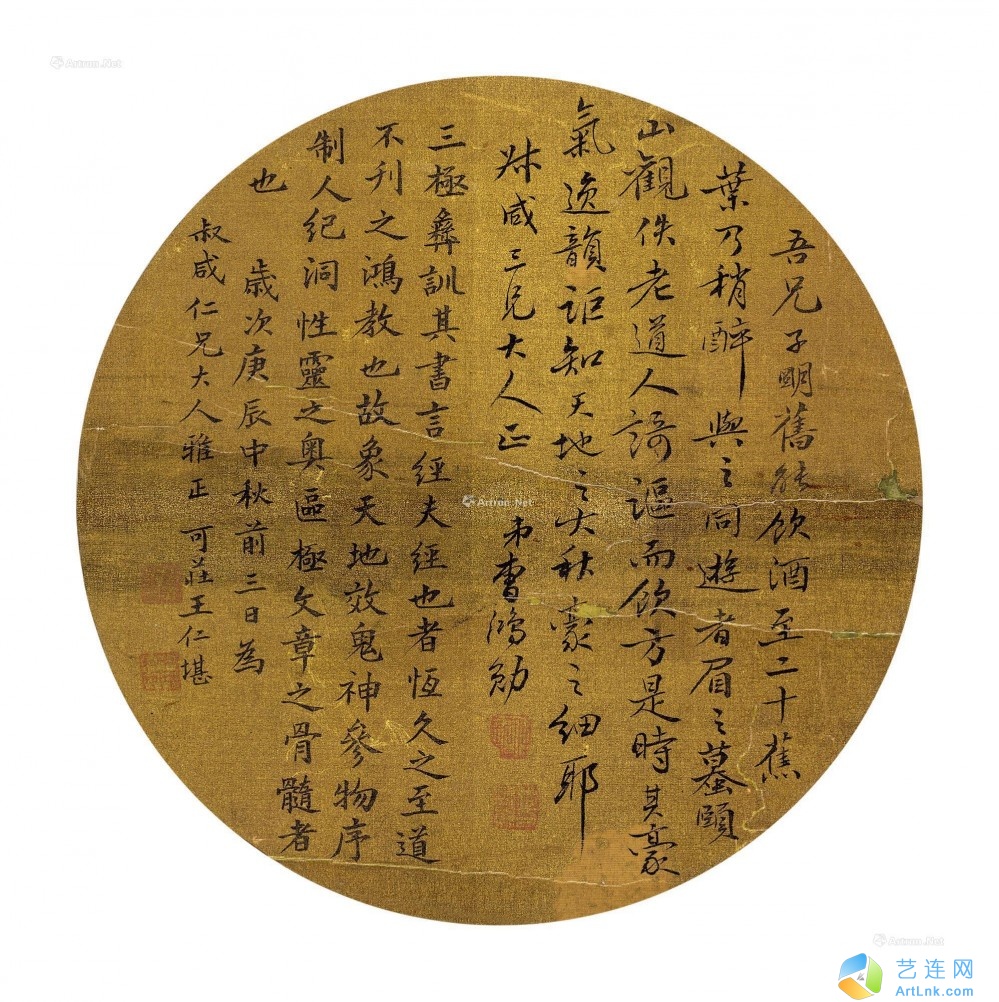 吾兄子明舊能飲酒至二十蕉
葉乃稍醉與之同遊者眉之蟇頤
山觀侁老道人謌謳而飲方是時其豪
氣逸韻詎知天地之大秋豪之細耶
尗咸三兄大人正 弟曹鴻勛
三極彝訓其書言經夫經也者恆久之至道
不刊之鴻教也故象天地效鬼神參物序
制人紀洞性靈之奧區極文章之骨髓者
也 歲次庚辰中秋前三日為
叔咸仁兄大人雅正 可莊王仁堪
Artron.Net
Artron.Net
Artron.Net
艺连网
ArtLnk.com